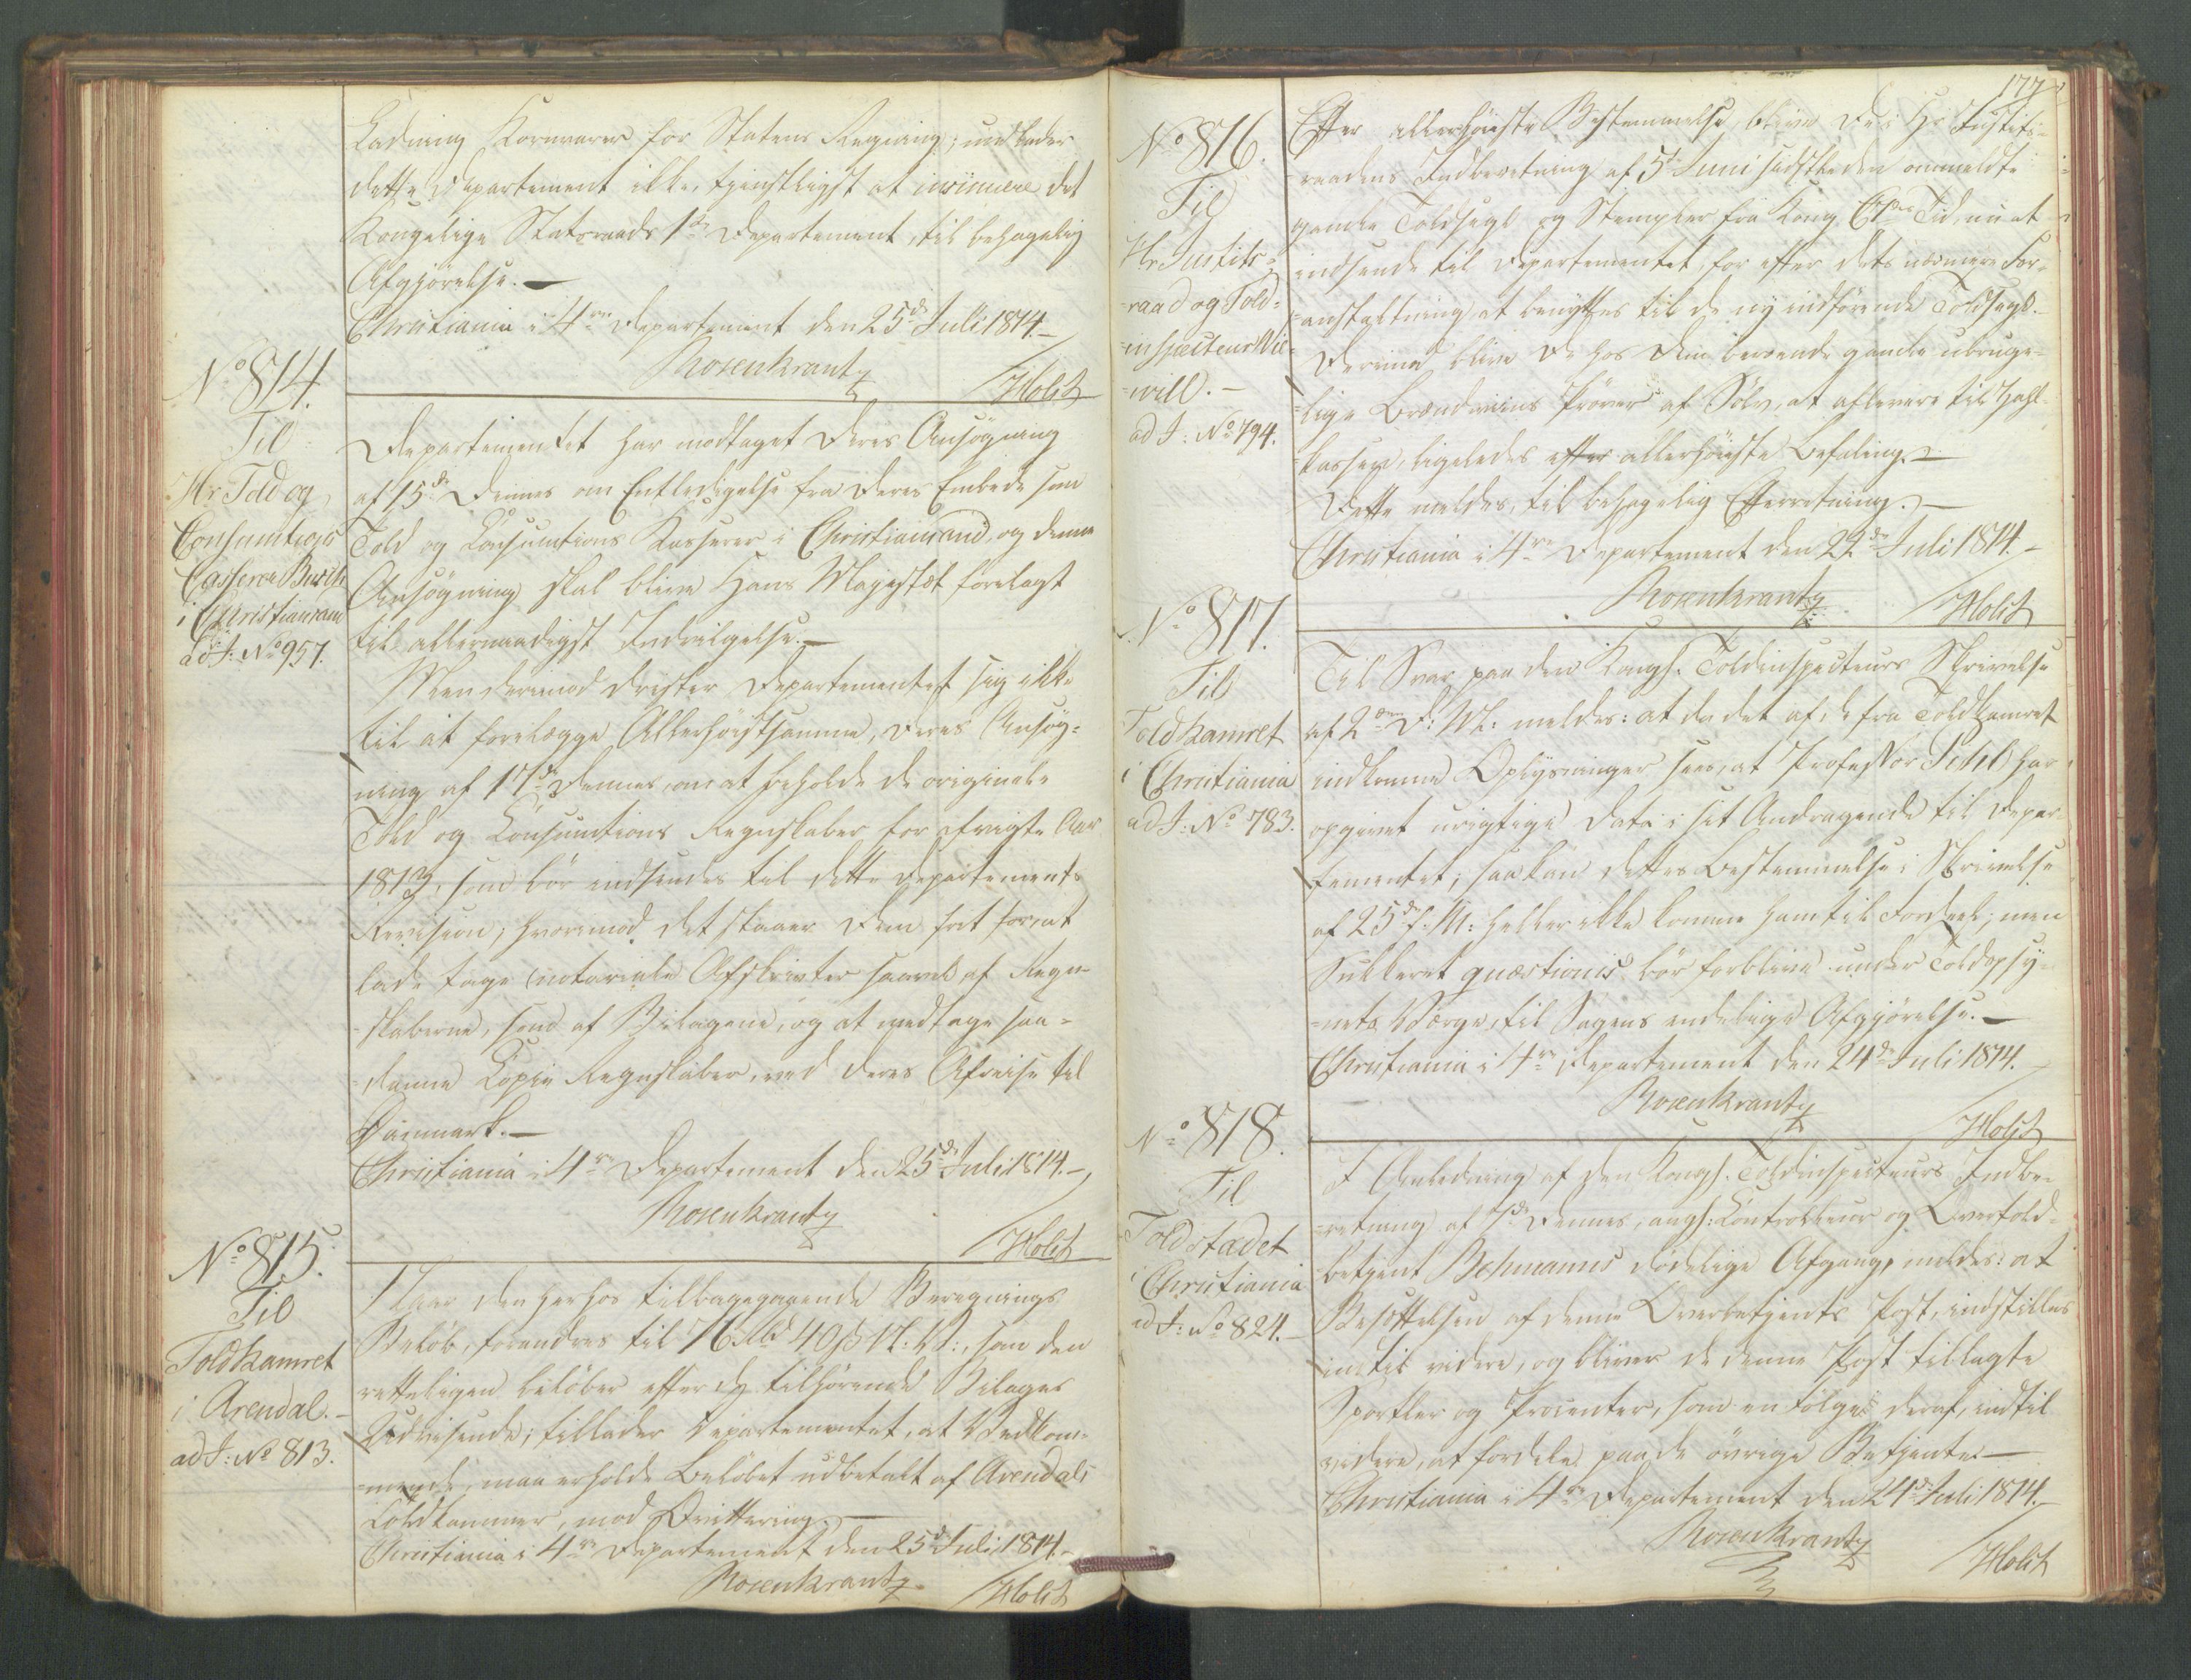 Ladning Kornvarer for Statens Regning; undlader
dette Departement ikke, tjenstligst at insinuere det
Kongelige Statsraads 1ste Departement, til behagelig
Afgjørelse. —
Christiania i 4re Departement den 25de Juli 1814. —
Rosenkrantz
/Holst
No 814.
Til
Hr Told og
Consumtions
Casserer Busch
i Christiansand
ad J: No 957.
Departementet har modtaget Deres Ansøgning
af 15de Dennes om Entledigelse fra Deres Embede som
Told og Consumtions Kasserer i Christiansand, og denne
Ansøgning skal blive Hans Majestæt forelagt
til allernaadigst Indvilgelse. —
Men derimod drister Departementet sig ikke
til at forelægge Allerhøistsamme, Deres Ansøg=
ning af 17de Dennes, om at beholde de originale
Told og Consumtions Regnskaber for afvigte Aar
1813, som bør indsendes til dette Departements
Revision; hvorimod det staaer Dem frit for, at
lade tage notariale Afskrivter saavel af Regn=
=skaberne, som af Bilagene, og at medtage saa=
=danne Copie Regnskaber, ved Deres Afreise til
Danmark. —
Christiania i 4re Departement den 25de Juli 1814. —
Rosenkrantz
/Holst
No 815.
Til
Toldkamret
i Arendal. —
ad J: No 813.
Naar den herhos tilbagegaaende Beregnings
Beløb, forandres til 76 Rbd 40 s N: V:, som den
retteligen beløber efter de tilhørende Bilages
Udvisende; tillader Departementet, at Vedkom=
=mende, maa erholde Beløbet udbetalt af Arendals
Toldkammer, mod Qvittering. —
Christiania i 4re Departement den 25de Juli 1814. —
Rosenkrantz
/Holst
177
No 816.
Til
Hr Justits=
=raad og Told=
=inspecteur Wie=
=will. —
ad J: No 794.
Efter allerhøieste Bestemmelse, blive de i Hr Justits=
raadens Indberetning af 5te Juni sidstleden ommeldte
gamle Toldsegl og Stempler fra Kong Tid, nu at
indsende til Departementet, for efter dets nærmere For=
=anstaltning at benyttes til de ny indførende Toldsegl. —
Derimod blive De hos Dem beroende gamle ubruge=
=lige Brændeviins Prøver af Sølv, at aflevere til Zahl=
=kassen, ligeledes efter allerhøieste Befaling. —
Dette meldes, til behagelig Efterretning. —
Christiania i 4re Departement den 22de Juli 1814. —
Rosenkrantz
/Holst
No 817.
Til
Toldkamret
i Christiania
ad J: No 783.
Til Svar paa den Kongl. Toldinspecteurs Skrivelse
af 2den D: M: meldes: at da det af de fra Toldkamret
indkomne Oplysninger sees, at Professor Pihl har
opgivet urigtige data i sit Andragende til Depar=
tementet; saa kan dettes Bestemmelse i Skrivelse
af 25de f: M: heller ikke komme ham til Fordeel; men
Sukkeret quæstionis bør forblive under Toldopsy=
=nets Værge, til Sagens endelige Afgjørelse. —
Christiania i 4re Departement den 24de Juli 1814.
Rosenkrantz
/Holst
No 818.
Til
Toldstædet
i Christiania
ad J: No 824. —
I Anledning af den Kongl. Toldinspecteurs Indbe=
=retning af 7de Dennes, angl: Controlleur og Overtold=
betjent Bohmanns dødelige Afgang, meldes: at
Besættelsen af denne Overbetjents Post, indstilles
indtil videre, og bliver de denne Post tillagte
Sportler og Procenter, som en Følge deraf, indtil
videre, at fordele paa de øvrige Betjente. —
Christiania i 4re Departement den 24de Juli 1814. —
Rosenkrantz
/Holst